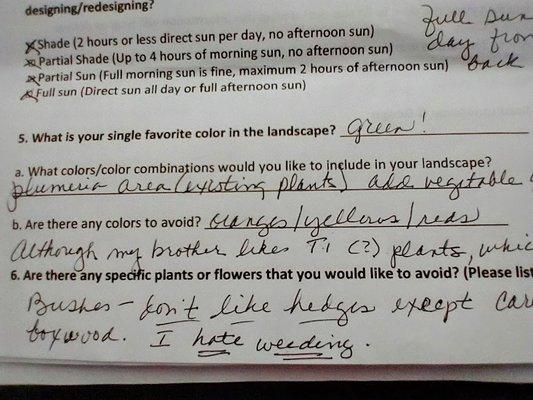 designing/redesigning?
Full sun
day from
back
Shade (2 hours or less direct sun per day, no afternoon sun)
Partial Shade (Up to 4 hours of morning sun, no afternoon sun)
Partial Sun (Full morning sun is fine, maximum 2 hours of afternoon sun)
Full sun (Direct sun all day or full afternoon sun)
5. What is your single favorite color in the landscape? green!
a. What colors/color combinations would you like to include in your landscape?
plumeria area (existing plants) add vegitable
b. Are there any colors to avoid? oranges/yellows/reds
Although my brother likes Ti (?) plants, whic
6. Are there any specific plants or flowers that you would like to avoid? (Please list
Bushes - don't like hedges except Car
boxwood. I hate weeding.